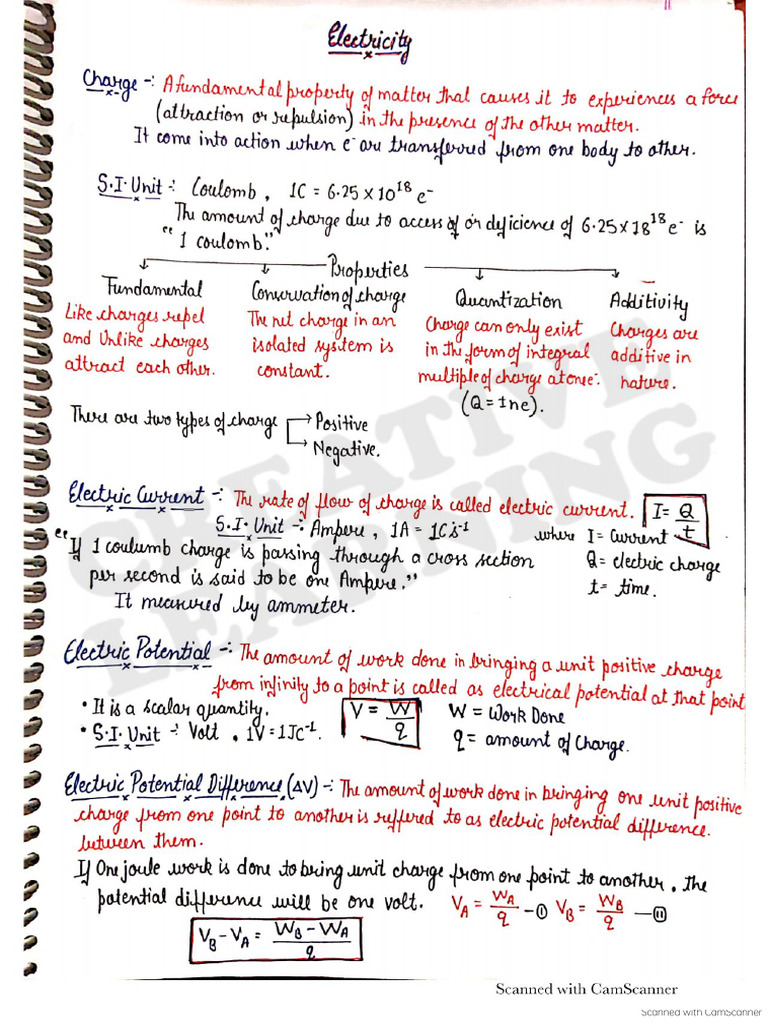 Electricity
Charge -: A fundamental property of matter that causes it to experiences a force
(attraction or repulsion) in the presence of the other matter.
It come into action when e⁻ are transferred from one body to other.
S.I. Unit -: Coulomb, 1C = 6.25 x 10¹⁸ e⁻
The amount of charge due to access of or deficience of 6.25x18¹⁸ e⁻ is
"1 coulomb."
Properties
Fundamental Conservation of charge Quantization Additivity
Like charges repel The net charge in an Charge can only exist Charges are
and Unlike charges isolated system is in the form of integral additive in
attract each other. constant. multiple of charge at one e⁻. nature.
(Q = ±ne).
There are two types of charge → Positive
→ Negative.
Electric Current -: The rate of flow of charge is called electric current. I = Q/t
S.I. Unit -: Ampere, 1A = 1Cs⁻¹ where I = Current
"If 1 coulumb charge is passing through a cross section Q = electric charge
per second is said to be one Ampere." t = time.
It measured by ammeter.
Electric Potential -: The amount of work done in bringing a unit positive charge
from infinity to a point is called as electrical potential at that point
• It is a scalar quantity. V = W/q W = Work Done
• S.I. Unit -: Volt, 1V = 1JC⁻¹. q = amount of Charge.
Electric Potential Difference (ΔV) -: The amount of work done in bringing one unit positive
charge from one point to another is reffered to as electric potential difference.
between them.
If One joule work is done to bring unit charge from one point to another, the
potential difference will be one volt. V_A = W_A/q —① V_B = W_B/q —⑪
V_B - V_A = W_B - W_A/q
CREATIVE
LEARNING
Scanned with CamScanner
Scanned with CamScanner